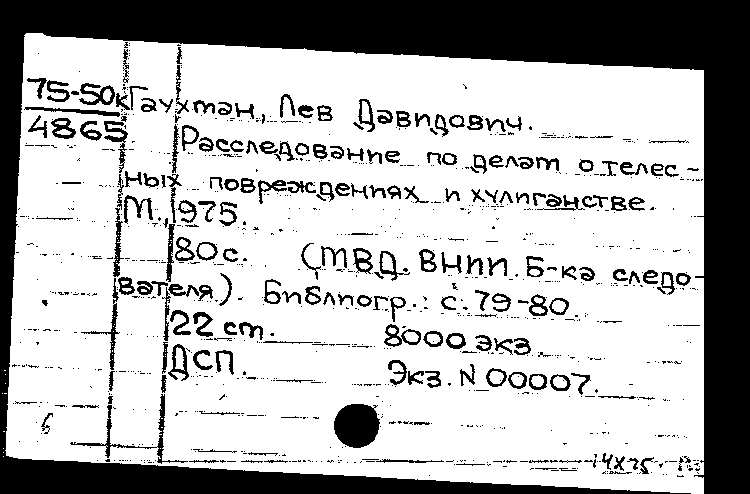 75-50к
4865
Гаухман, Лев Давидович.
Расследование по делам о телес-
ных повреждениях и хулиганстве.
М., 1975.
80 с. (МВД. ВНИИ. Б-ка следо-
вателя). Библиогр.: с. 79-80.
22 см. 8000 экз.
ДСП. Экз. N 00007.
б
14X75.